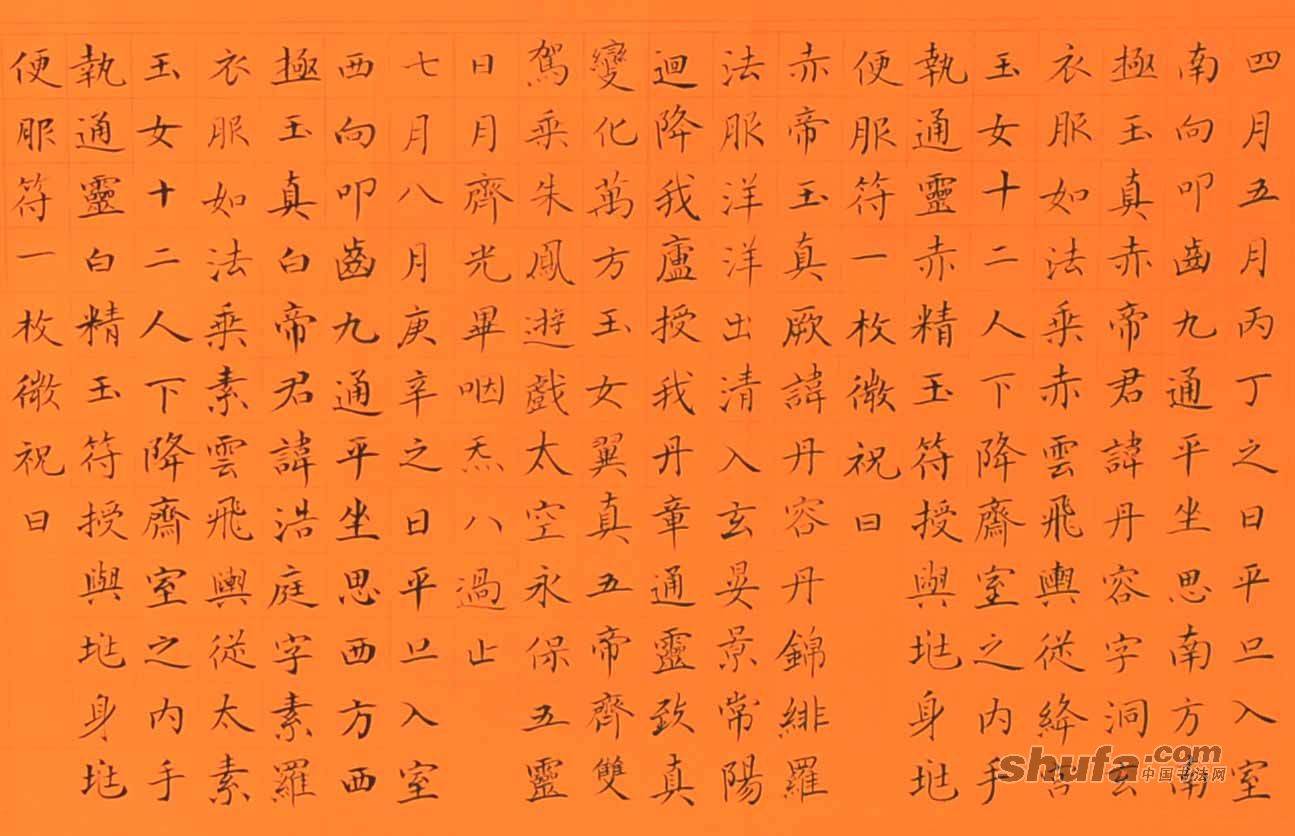 四月五月丙丁之日平旦入室
南向叩齒九通平坐思南方南
極玉真赤帝君諱丹容字洞玄
衣服如法乘赤雲飛輿從絳宮
玉女十二人下降齋室之内手
執通靈赤精玉符授與兆身兆
便服符一枚微祝曰
赤帝玉真厥諱丹容丹錦緋羅
法服洋洋出清入玄晃景常陽
迴降我廬授我丹章通靈致真
變化萬方玉女翼真五帝齊雙
駕乘朱鳳遊戲太空永保五靈
日月齊光畢咽炁八過止
七月八月庚辛之日平旦入室
西向叩齒九通平坐思西方西
極玉真白帝君諱浩庭字素羅
衣服如法乘素雲飛輿從太素
玉女十二人下降齋室之内手
執通靈白精玉符授與兆身兆
便服符一枚微祝曰
shufa.com
中国书法网